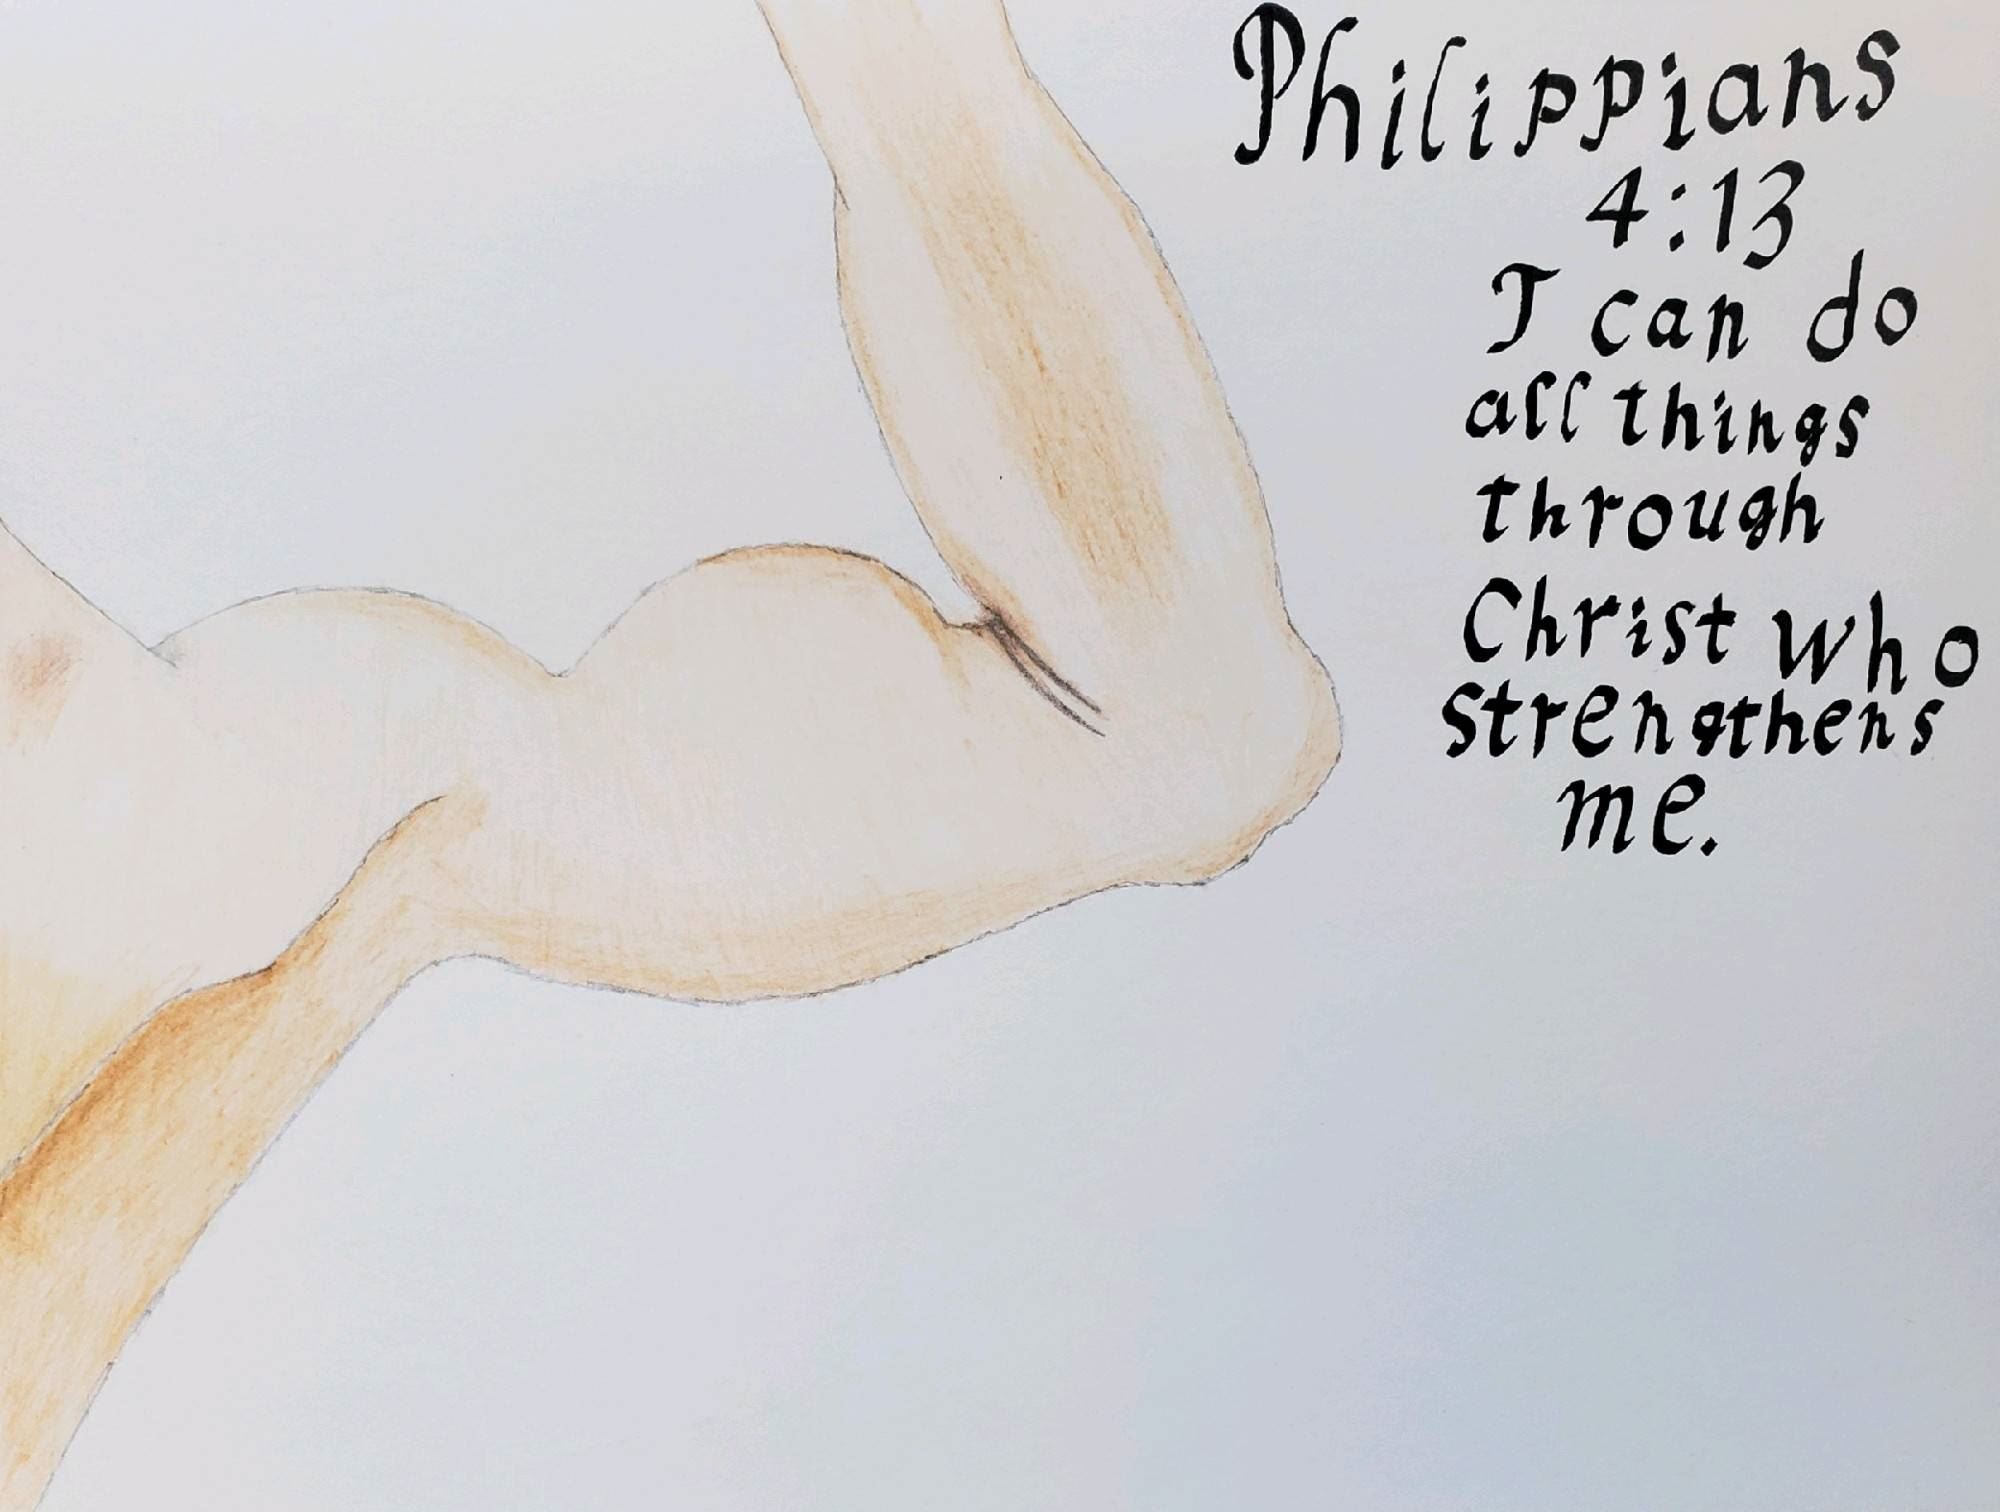 Philippians
4:13
I can do
all things
through
Christ who
strengthens
me.